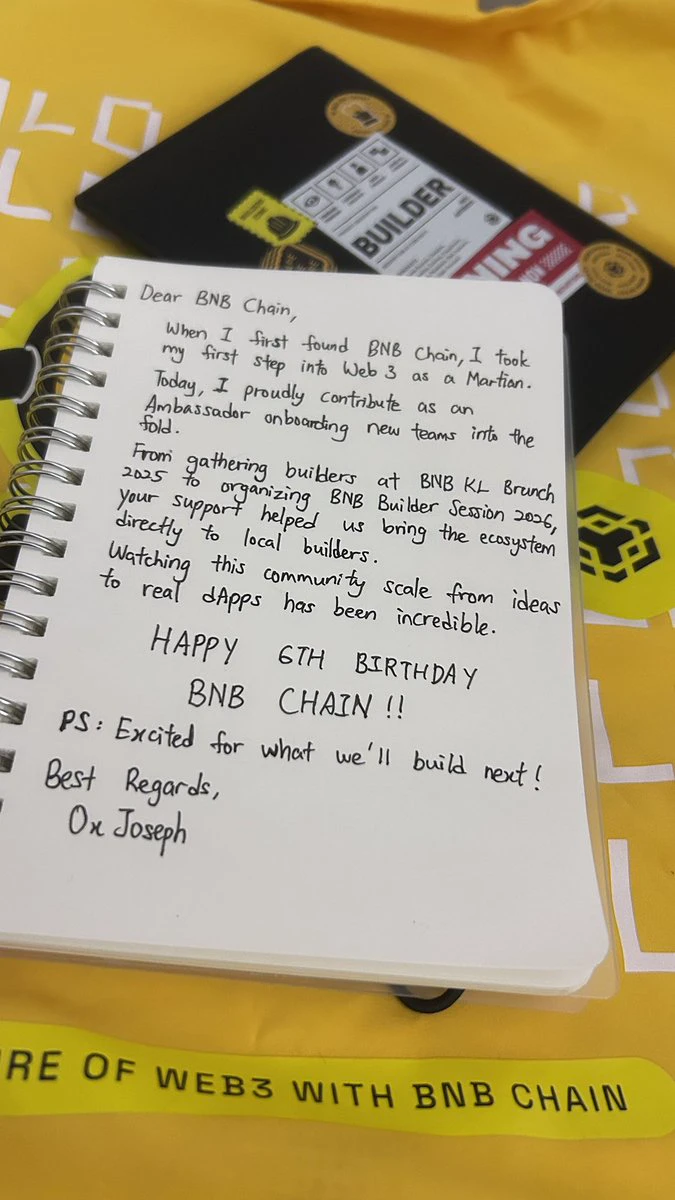 BUILDER
Dear BNB Chain,
When I first found BNB Chain, I took
my first step into Web 3 as a Martian.
Today, I proudly contribute as an
Ambassador onboarding new teams into the
fold.
From gathering builders at BNB KL Brunch
2025 to organizing BNB Builder Session 2026,
your support helped us bring the ecosystem
directly to local builders.
Watching this community scale from ideas
to real dApps has been incredible.
HAPPY 6TH BIRTHDAY
BNB CHAIN !!
PS: Excited for what we'll build next!
Best Regards,
0x Joseph
RE OF WEB3 WITH BNB CHAIN